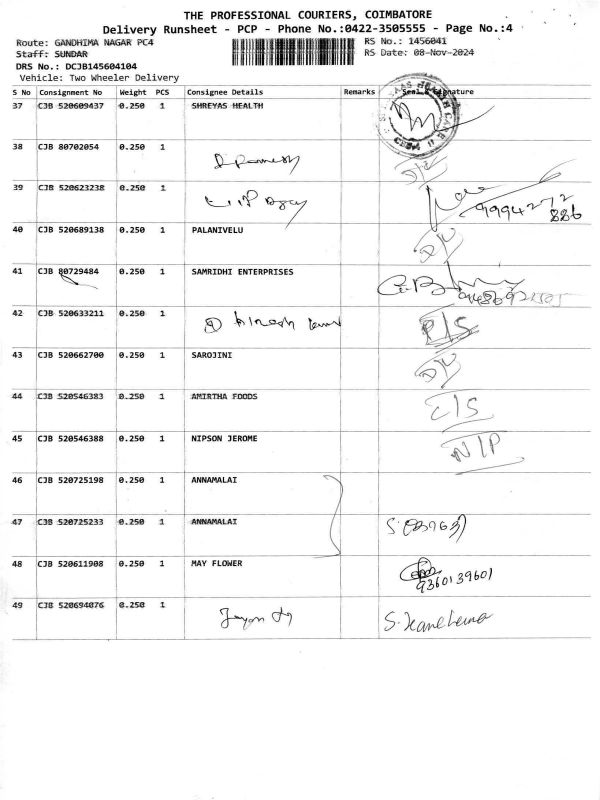 THE PROFESSIONAL COURIERS, COIMBATORE
Delivery Runsheet - PCP - Phone No.:0422-3505555 - Page No.:4
Route: GANDHIMA NAGAR PC4
RS No.: 1456041
Staff: SUNDAR
RS Date: 08-Nov-2024
DRS No.: DCJB145604104
Vehicle: Two Wheeler Delivery
S No Consignment No Weight PCS Consignee Details Remarks Seal & Signature
37 CJB 520609437 0.250 1 SHREYAS HEALTH
38 CJB 80702054 0.250 1
D Ramesh
39 CJB 520623238 0.250 1
9994272
886
40 CJB 520689138 0.250 1 PALANIVELU
41 CJB 80729484 0.250 1 SAMRIDHI ENTERPRISES
42 CJB 520633211 0.250 1
43 CJB 520662700 0.250 1 SAROJINI
44 CJB 520546383 0.250 1 AMIRTHA FOODS
45 CJB 520546388 0.250 1 NIPSON JEROME N/P
46 CJB 520725198 0.250 1 ANNAMALAI
47 CJB 520725233 0.250 1 ANNAMALAI
48 CJB 520611908 0.250 1 MAY FLOWER
9360139601
49 CJB 520694076 0.250 1